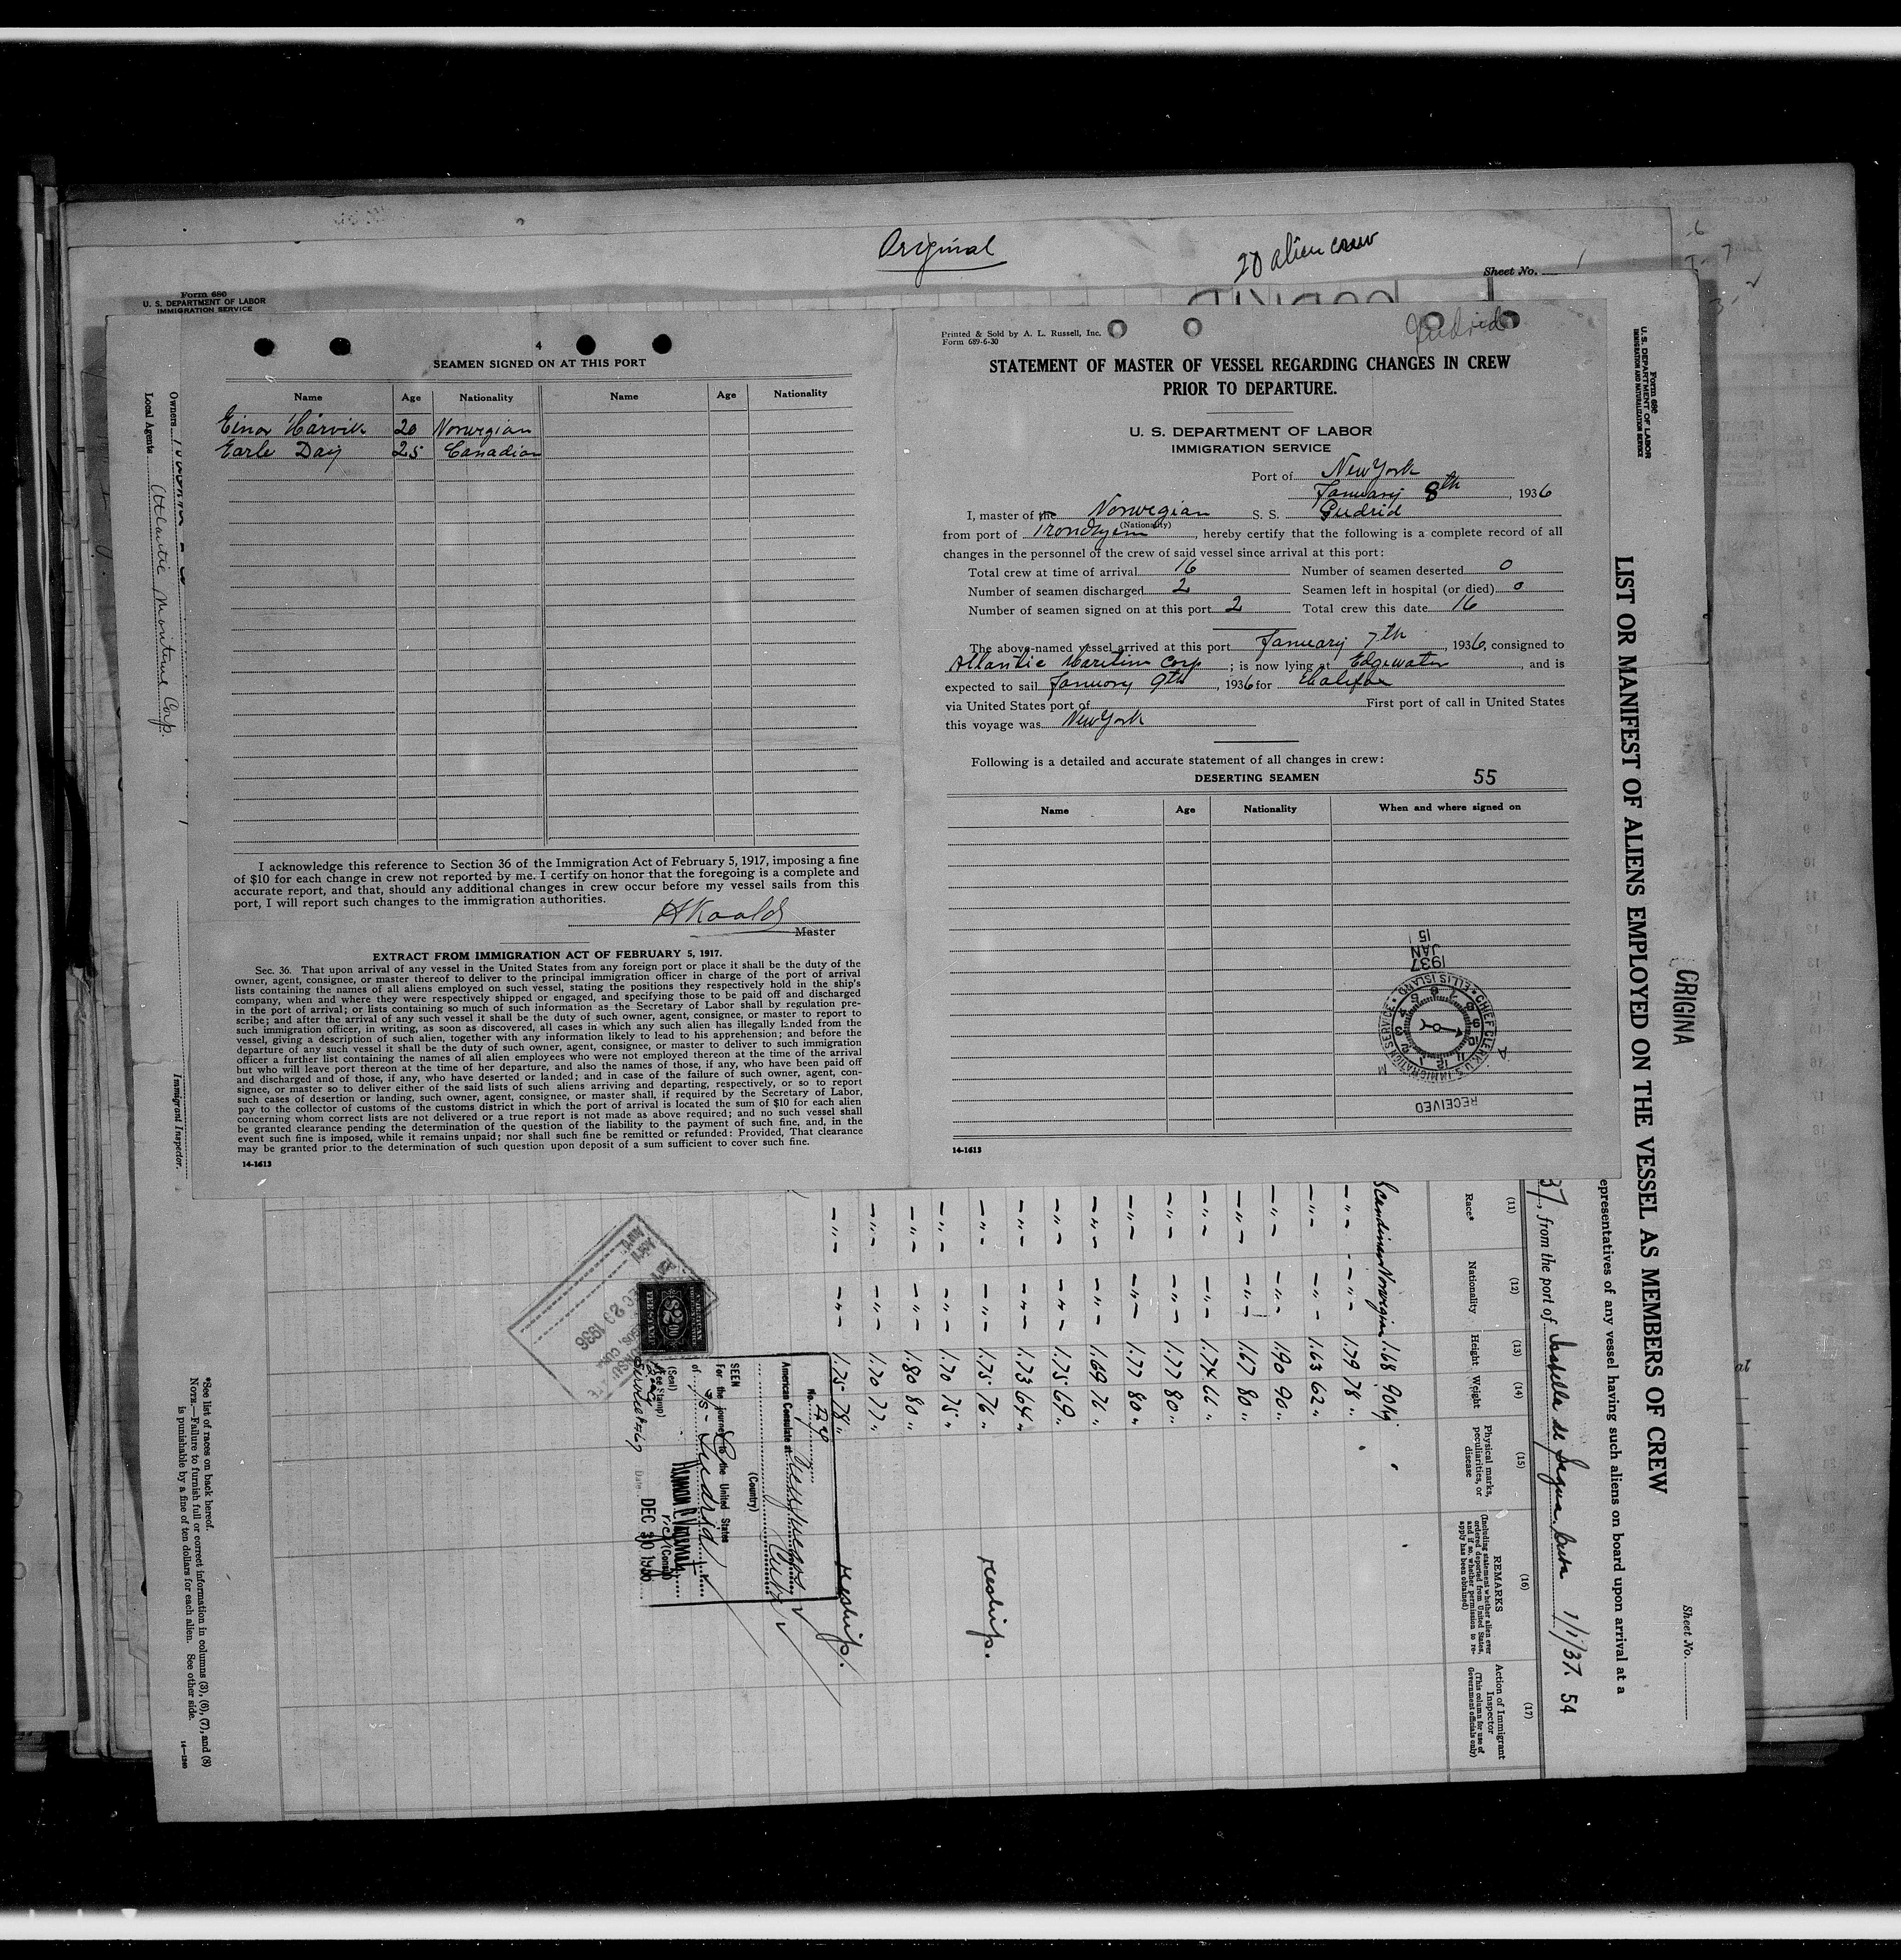 Original
20 alien crew
Sheet No. 1
Form 680
U. S. DEPARTMENT OF LABOR
IMMIGRATION SERVICE
Owners
Local Agents Atlantic Maritime Corp.
Immigrant Inspector.
4
SEAMEN SIGNED ON AT THIS PORT
Name Age Nationality Name Age Nationality
Einar Hårvik 20 Norwegian
Earle Day 25 Canadian
I acknowledge this reference to Section 36 of the Immigration Act of February 5, 1917, imposing a fine
of $10 for each change in crew not reported by me. I certify on honor that the foregoing is a complete and
accurate report, and that, should any additional changes in crew occur before my vessel sails from this
port, I will report such changes to the immigration authorities.
Master
EXTRACT FROM IMMIGRATION ACT OF FEBRUARY 5, 1917.
Sec. 36. That upon arrival of any vessel in the United States from any foreign port or place it shall be the duty of the
owner, agent, consignee, or master thereof to deliver to the principal immigration officer in charge of the port of arrival
lists containing the names of all aliens employed on such vessel, stating the positions they respectively hold in the ship's
company, when and where they were respectively shipped or engaged, and specifying those to be paid off and discharged
in the port of arrival; or lists containing so much of such information as the Secretary of Labor shall by regulation pre-
scribe; and after the arrival of any such vessel it shall be the duty of such owner, agent, consignee, or master to report to
such immigration officer, in writing, as soon as discovered, all cases in which any such alien has illegally landed from the
vessel, giving a description of such alien, together with any information likely to lead to his apprehension; and before the
departure of any such vessel it shall be the duty of such owner, agent, consignee, or master to deliver to such immigration
officer a further list containing the names of all alien employees who were not employed thereon at the time of the arrival
but who will leave port thereon at the time of her departure, and also the names of those, if any, who have been paid off
and discharged and of those, if any, who have deserted or landed; and in case of the failure of such owner, agent, con-
signee, or master so to deliver either of the said lists of such aliens arriving and departing, respectively, or so to report
such cases of desertion or landing, such owner, agent, consignee, or master shall, if required by the Secretary of Labor,
pay to the collector of customs of the customs district in which the port of arrival is located the sum of $10 for each alien
concerning whom correct lists are not delivered or a true report is not made as above required; and no such vessel shall
be granted clearance pending the determination of the question of the liability to the payment of such fine, and, in the
event such fine is imposed, while it remains unpaid; nor shall such fine be remitted or refunded: Provided, That clearance
may be granted prior to the determination of such question upon deposit of a sum sufficient to cover such fine.
14-1613
Printed & Sold by A. L. Russell, Inc.
Form 689-6-30
Gudrid
STATEMENT OF MASTER OF VESSEL REGARDING CHANGES IN CREW
PRIOR TO DEPARTURE.
U. S. DEPARTMENT OF LABOR
IMMIGRATION SERVICE
Port of New York
January 8th, 1936
I, master of the Norwegian S. S. Gudrid
(Nationality)
from port of Trondhjem, hereby certify that the following is a complete record of all
changes in the personnel of the crew of said vessel since arrival at this port:
Total crew at time of arrival 16 Number of seamen deserted 0
Number of seamen discharged 2 Seamen left in hospital (or died) 0
Number of seamen signed on at this port 2 Total crew this date 16
The above-named vessel arrived at this port January 7th, 1936, consigned to
Atlantic Maritim Corp; is now lying at Edgewater, and is
expected to sail January 9th, 1936 for Halifax
via United States port of First port of call in United States
this voyage was New York
Following is a detailed and accurate statement of all changes in crew:
DESERTING SEAMEN 55
Name Age Nationality When and where signed on
1937
JAN
15
CHIEF CLERK U.S. IMMIGRATION SERVICE ELLIS ISLAND
RECEIVED
14-1613
Form 680
U. S. DEPARTMENT OF LABOR
IMMIGRATION AND NATURALIZATION SERVICE
LIST OR MANIFEST OF ALIENS EMPLOYED ON THE VESSEL AS MEMBERS OF CREW
ORIGINA
Sheet No.
epresentatives of any vessel having such aliens on board upon arrival at a
37, from the port of Isabella de Sagua. Cuba 1/1/37. 54
(11) (12) (13) (14) (15) (16) (17)
Race* Nationality Height Weight Physical marks, peculiarities, or disease
REMARKS
(Including statement whether alien ever ordered deported from United States, and if so, whether permission to re-apply has been obtained)
Action of Immigrant Inspector
(This column for use of Government officials only)
Scandinav Norwegian 1.68 90 kg.
-"- -"- 1.79 78 "
-"- -"- 1.63 62 "
-"- -"- 1.90 90 "
-"- -"- 1.67 80 "
-"- -"- 1.74 66 "
-"- -"- 1.77 80 "
-"- -"- 1.77 80 "
-"- -"- 1.69 76 "
-"- -"- 1.75 69 "
-"- -"- 1.73 64 "
-"- -"- 1.75 76 " reship.
-"- -"- 1.70 75 "
-"- -"- 1.80 80 "
-"- -"- 1.70 77 "
-"- -"- 1.75 78 " reship.
No.
American Consulate at
Cuba
(Country)
SEEN
For the journey to the United States
of S/S Gudrid
(Seal)
(Fee Stamp)
Date DEC 30 1936
AMERICAN
$2.00
FEE STAMP
*See list of races on back hereof.
NOTE.—Failure to furnish full or correct information in columns (3), (6), (7), and (8)
is punishable by a fine of ten dollars for each alien. See other side.
14—1240